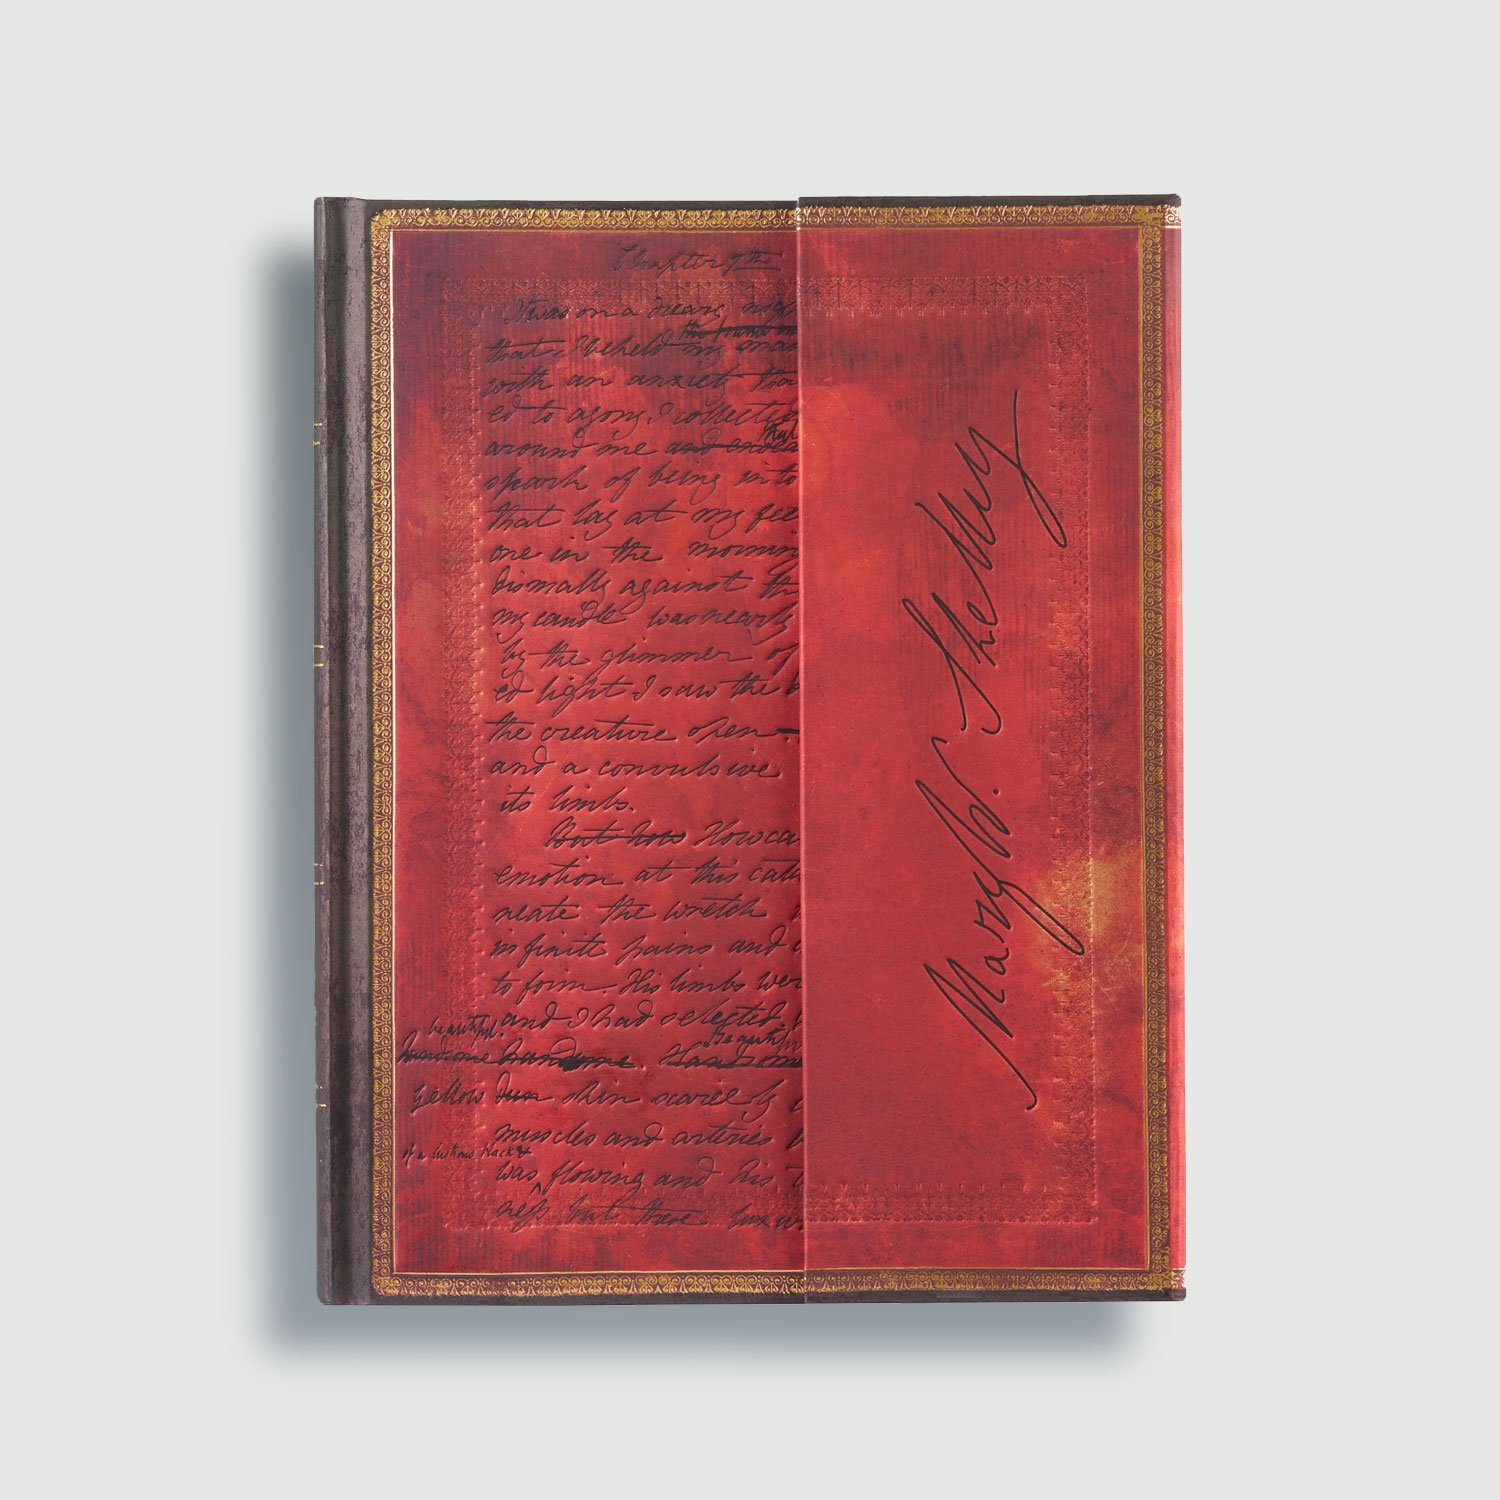 Chapter 7th
It was on a dreary nig
the frame on
that I beheld my man
with an anxiety tha
ed to agony I collected
that
around me and endea
spark of being into
that lay at my fee
one in the morning
dismally against the
my candle was nearly
by the glimmer of
ed light I saw the
the creature open
and a convulsive
its limbs.
But how How ca
emotion at this cat
neate the wretch
infinite pains and
to form. His limbs wer
and I had selected
beautiful. Beautiful
handsome handsome. Handsome
yellow dun skin scarcely
muscles and arteries
of a lustrous black &
was flowing and his t
ness but these luxur
Mary W. Shelley